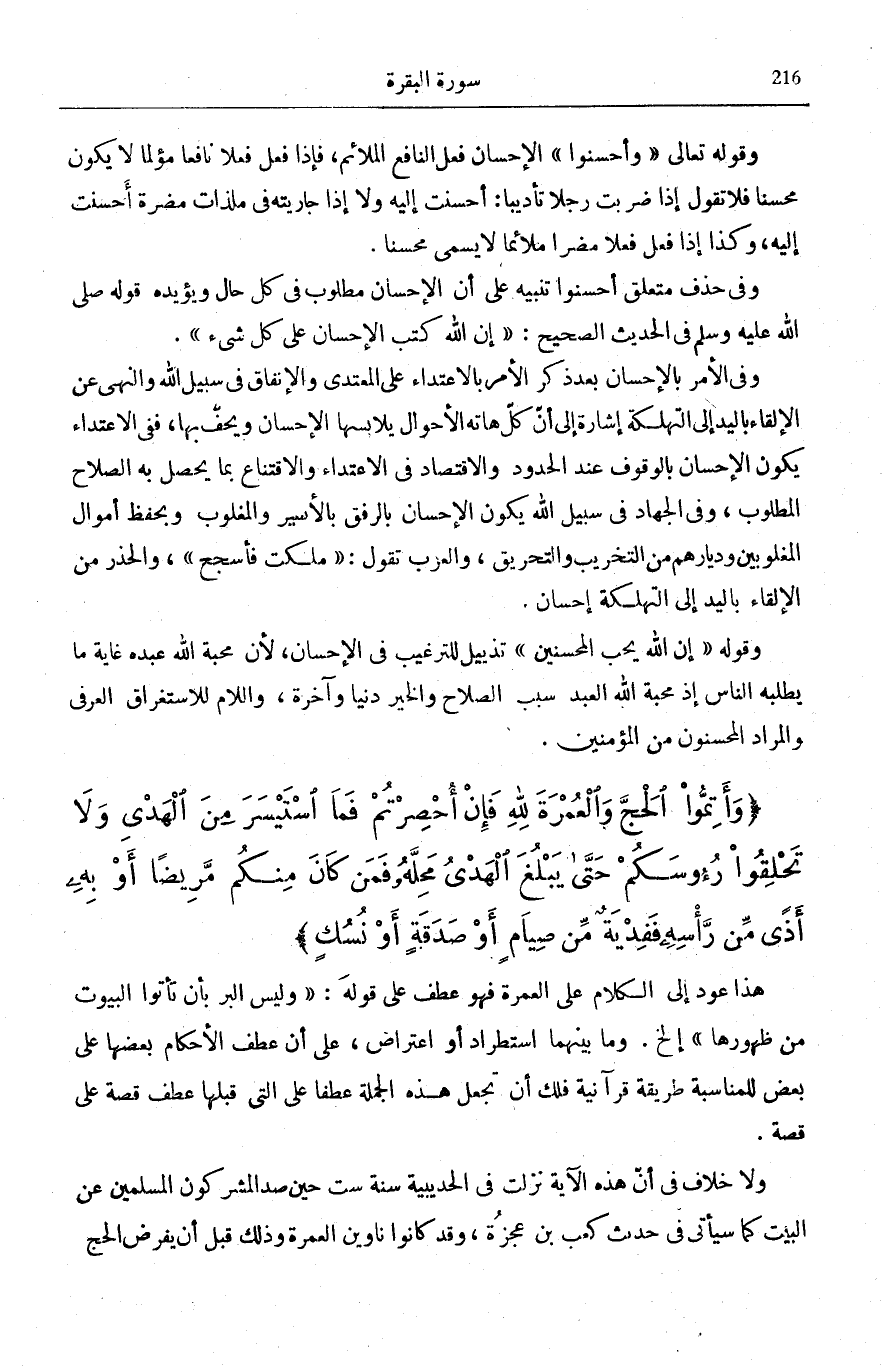 216
سورة البقرة
وقوله تعالى « وأحسنوا » الإحسان فعل النافع الملائم، فإذا فعل فعلا نافعا مؤلما لا يكون
محسنا فلا تقول إذا ضربت رجلا تأديبا: أحسنت إليه ولا إذا جاريته فى ملذات مضرة أَحسنت
إليه، وكذا إذا فعل فعلا مضرا ملائما لا يسمى محسنا .
وفى حذف متعلق أحسنوا تنبيه على أن الإحسان مطلوب فى كل حال ويؤيده قوله صلى
الله عليه وسلم فى الحديث الصحيح : « إن الله كتب الإحسان على كل شىء » .
وفى الأمر بالإحسان بعد ذكر الأمر بالاعتداء على المعتدى والإنفاق فى سبيل الله والنهى عن
الإلقاء باليد إلى التهلكة إشارة إلى أنّ كلّ هاته الأحوال يلابسها الإحسان ويحفّ بها، ففى الاعتداء
يكون الإحسان بالوقوف عند الحدود والاقتصاد فى الاعتداء والاقتناع بما يحصل به الصلاح
المطلوب ، وفى الجهاد فى سبيل الله يكون الإحسان بالرفق بالأسير والمغلوب وبحفظ أموال
المغلوبين وديارهم من التخريب والتحريق ، والعرب تقول : « ملكت فأسجح » ، والحذر من
الإلقاء باليد إلى التهلكة إحسان .
وقوله « إن الله يحب المحسنين » تذييل للترغيب فى الإحسان، لأن محبة الله عبده غاية ما
يطلبه الناس إذ محبة الله العبد سبب الصلاح والخير دنيا وآخرة ، واللام للاستغراق العرفى
والمراد المحسنون من المؤمنين .
﴿ وَأَتِمُّوا۟ ٱلْحَجَّ وَٱلْعُمْرَةَ لِلهِ فَإِنْ أُحْصِرْتُمْ فَمَا ٱسْتَيْسَرَ مِنَ ٱلْهَدْىِ وَلَا
تَحْلِقُوا۟ رُءُوسَكُمْ حَتَّىٰ يَبْلُغَ ٱلْهَدْىُ مَحِلَّهُۥ فَمَن كَانَ مِنكُم مَّرِيضًا أَوْ بِهِۦ
أَذًى مِّن رَّأْسِهِۦ فَفِدْيَةٌ مِّن صِيَامٍ أَوْ صَدَقَةٍ أَوْ نُسُكٍ ﴾
هذا عود إلى الكلام على العمرة فهو عطف على قوله : « وليس البر بأن تأتوا البيوت
من ظهورها » إلخ . وما بينهما استطراد أو اعتراض ، على أن عطف الأحكام بعضها على
بعض للمناسبة طريقة قرآنية فلك أن تجعل هذه الجملة عطفا على التى قبلها عطف قصة على
قصة .
ولا خلاف فى أنّ هذه الآية نزلت فى الحديبية سنة ست حين صد المشركون المسلمين عن
البيت كما سيأتى فى حديث كعب بن عجرة ، وقد كانوا ناوين العمرة وذلك قبل أن يفرض الحج